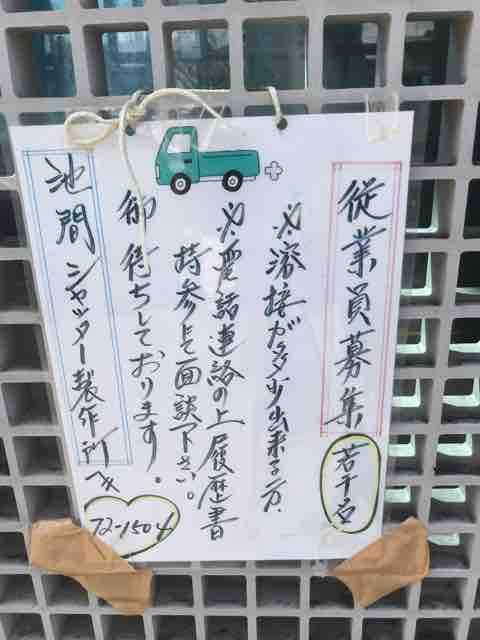 従業員募集
若干名
※溶接が多少出来る方.
※電話連絡の上履歴書
持参して面談下さい。
御待ちしております。
池間シャッター製作所
72-1504